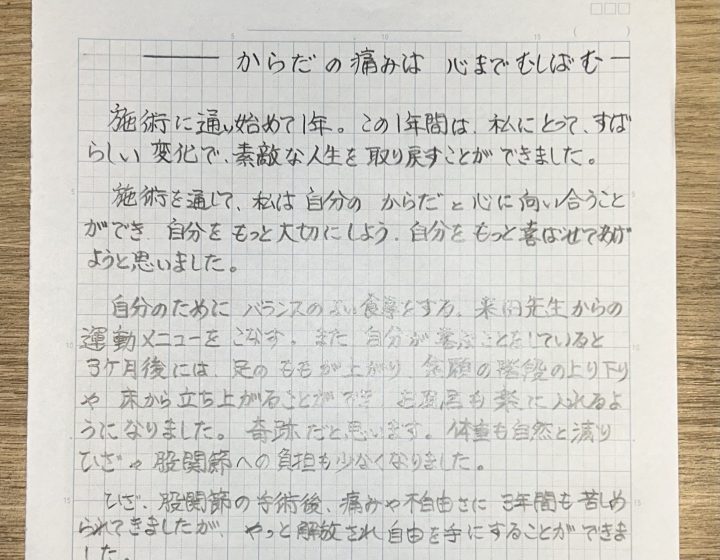 からだの痛みは 心までむしばむ
施術に通い始めて1年。この1年間は、私にとって、すば
らしい変化で、素敵な人生を取り戻すことができました。
施術を通じて、私は自分の からだと心に向い合うこと
ができ 自分をもっと大切にしよう、自分をもっと喜ばせてあげ
ようと思いました。
自分のために バランスのよい食事をする、米田先生からの
運動メニューをこなす。また 自分が喜ぶことをしていると
3ケ月後には、足のももが上がり、念願の階段の上り下り
や 床から立ち上がることができ お風呂も楽に入れるよ
うになりました。奇跡だと思います。体重も自然と減り
ひざや股関節への負担も少なくなりました。
ひざ、股関節の手術後、痛みや不自由さに 3年間も苦しめ
られてきましたが、やっと解放され自由を手にすることができま
した。